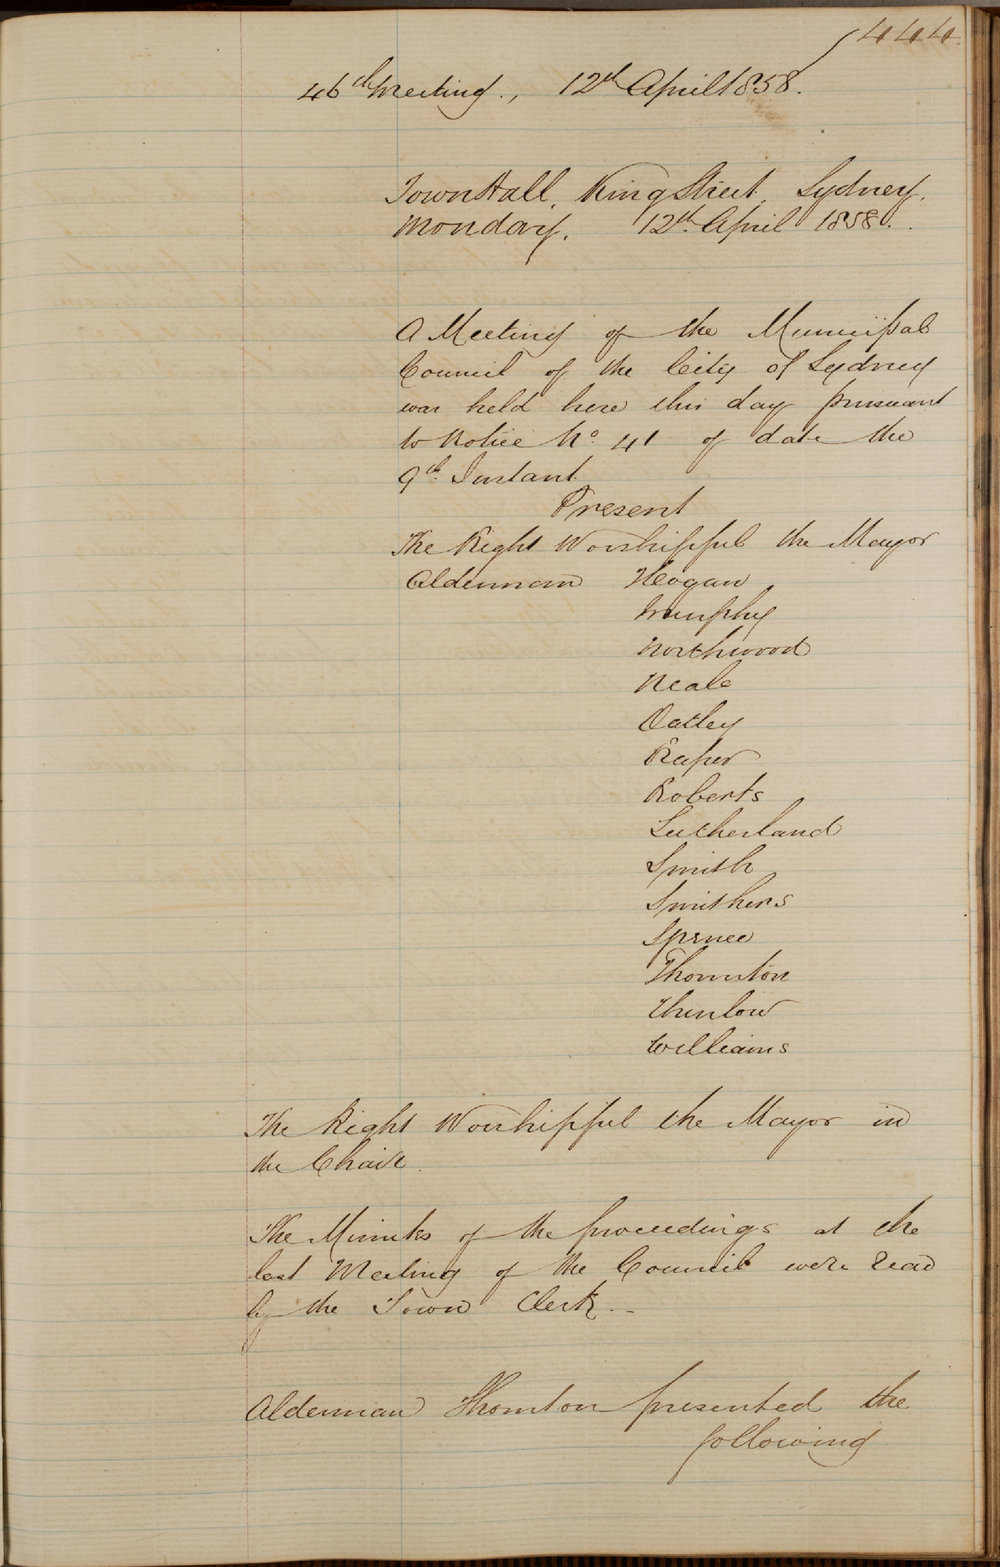 444
46th Meeting., 12th April 1858.
Town Hall, King Street, Sydney.
Monday, 12th April 1858.
A Meeting of the Municipal
Council of the City of Sydney
was held here this day pursuant
to Notice No. 41 of date the
9th Instant.
Present
The Right Worshipful the Mayor
Alderman Hogan
Murphy
Northwood
Neale
Oatley
Raper
Roberts
Sutherland
Smith
Smithers
Spence
Thornton
Thurlow
Williams
The Right Worshipful the Mayor in
the Chair.
The Minutes of the proceedings at the
last Meeting of the Council were read
by the Town Clerk. -
Alderman Thornton presented the
following